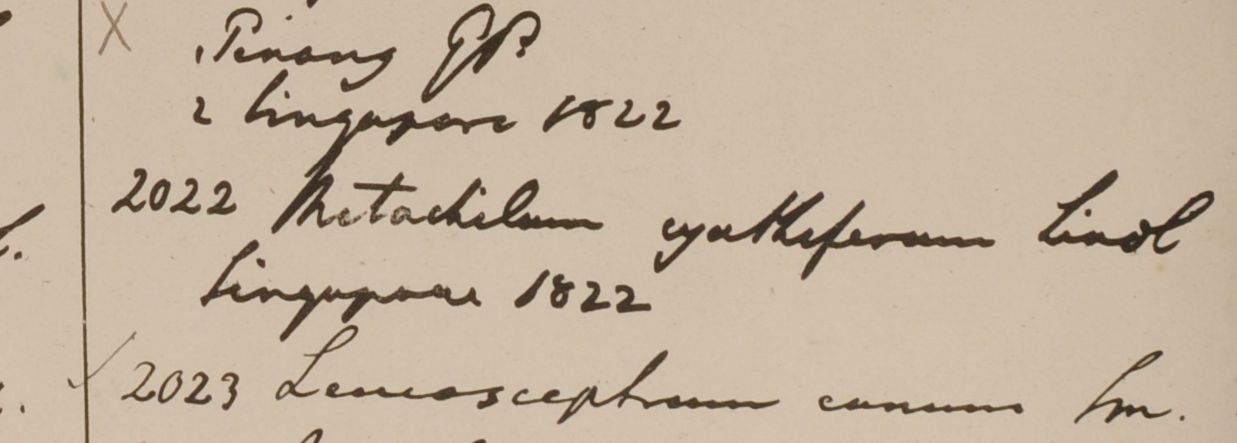 X Pinang GP.
2 Singapore 1822
2022 Metachilum cyathiferum Lindl
Singapore 1822
✓ 2023 Leucosceptrum canum Sm.